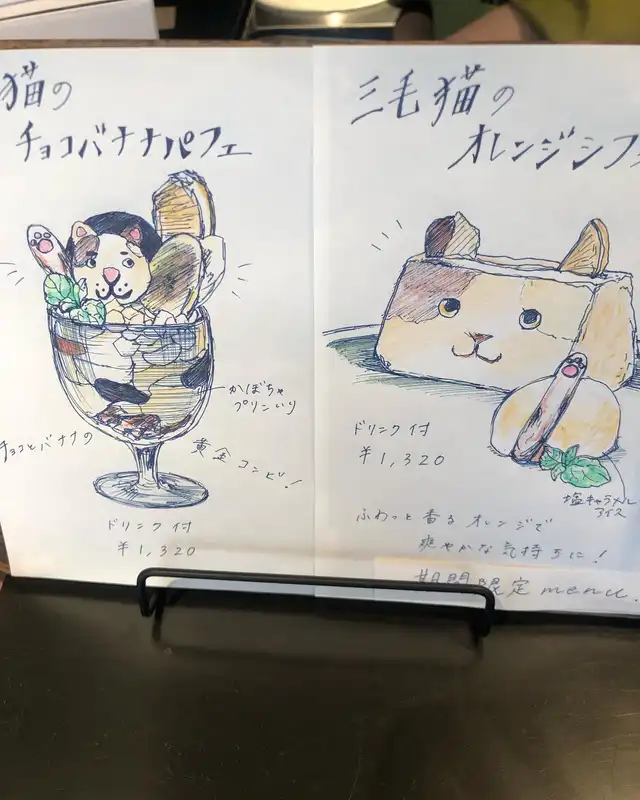 猫の
チョコバナナパフェ
かぼちゃ
プリンいり
チョコとバナナの
黄金コンビ!
ドリンク付
¥1,320
三毛猫の
オレンジシフ
ドリンク付
¥1,320
塩キャラメル
アイス
ふわっと香るオレンジで
爽やかな気持ちに!
期間限定menu.